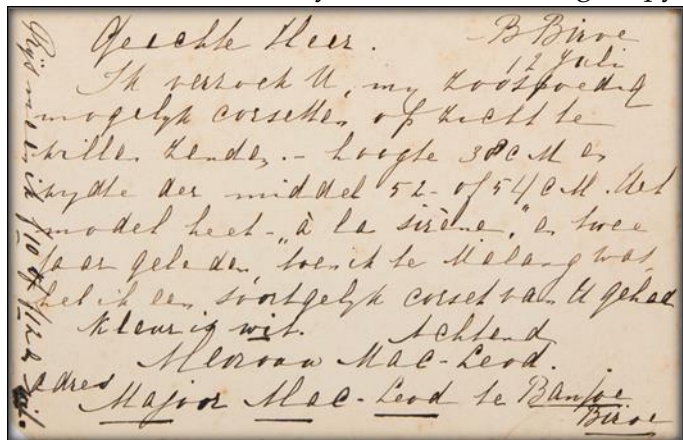 Geachte Heer.
B Biroe
12 Juli
Ik verzoek U, my zoospoedig
mogelyk corsetten op zicht te
willen zenden. - hoogte 38 c M en
wydte der middel 52 - of 54 c M. Het
model heet - "à la sirène", en twee
jaar geleden, toen ik te Malang was,
heb ik een soortgelyk corset van U gehad
Kleur is wit. Achtend
Mevrouw Mac-Leod.
adres
Majoor Mac-Leod te Banjoe
Biroe
Prys meen ik f 10 of f 12